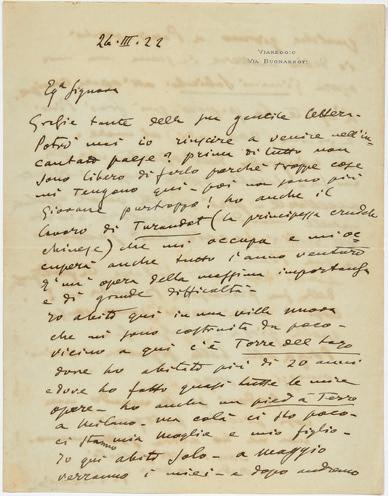 26·III·22
VIAREGGIO
VIA BUONARROTI
Eg.a Signora
Grazie tante della sua gentile lettera.
Potrò mai io riuscire a venire nell'in-
cantato paese? prima di tutto non
sono libero di farlo perchè troppe cose
mi tengono qui - poi non sono più
giovane purtroppo! ho anche il
lavoro di Turandot (la principessa crudele
chinese) che mi occupa e mi oc-
cuperà anche tutto l'anno venturo
È un'opera della massima importanza
e di grande difficoltà -
Io abito qui in una villa nuova
che mi sono costruita da poco -
vicino a qui c'è Torre del Lago
dove ho abitato più di 20 anni
e dove ho fatto quasi tutte le mie
opere - ho anche un pied à terre
a Milano - ma colà ci sto poco -
ci stanno mia moglie e mio figlio -
Io qui abito solo - a Maggio
verranno i miei - e dopo andremo